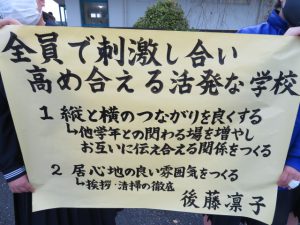 全員で刺激し合い
高め合える活発な学校
1 縦と横のつながりを良くする
↳他学年との関わる場を増やし
お互いに伝え合える関係をつくる
2 居心地の良い雰囲気をつくる
↳挨拶・清掃の徹底
後藤凛子